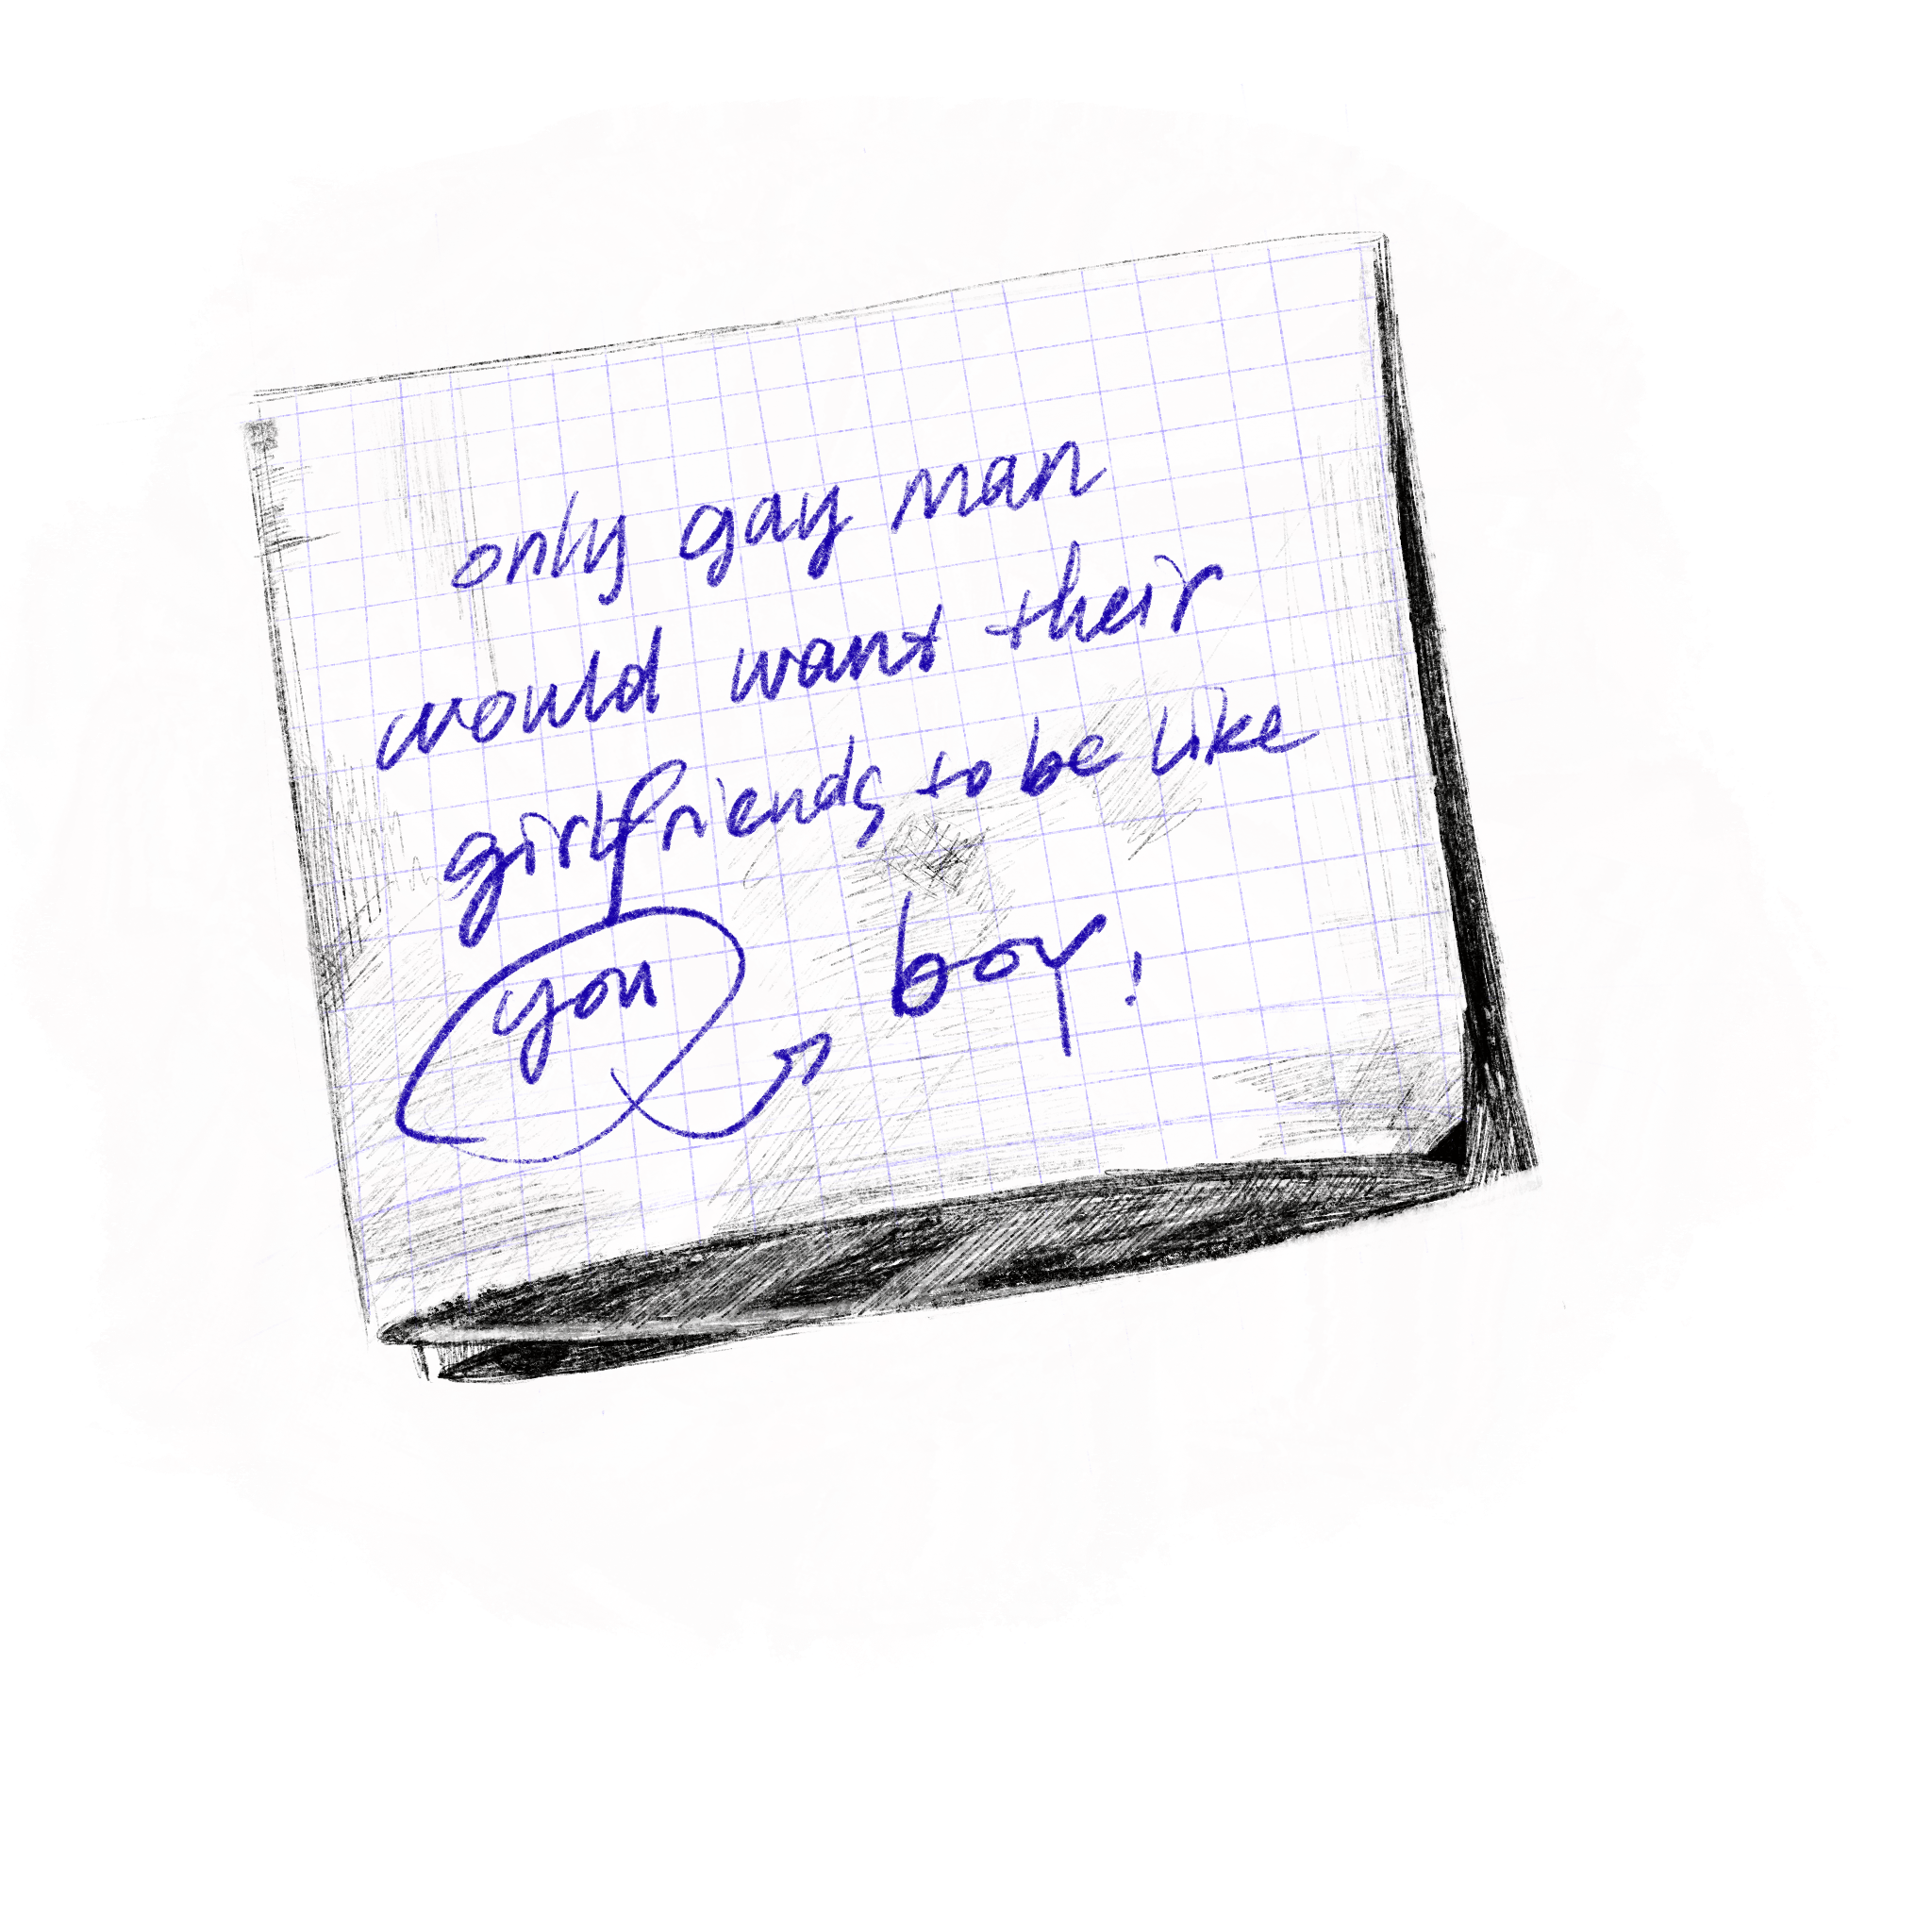 only gay man
would want their
girlfriends to be like
you boy!